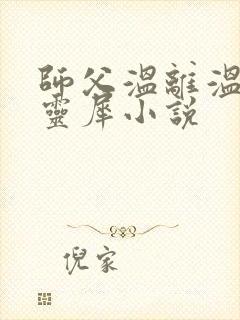 師父溫離溫
靈犀小說
倪家